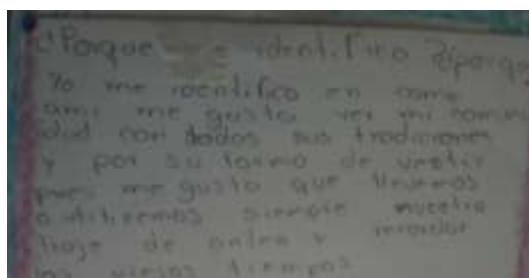 ¿Porque me identifico? porque
Yo me identifico en como
ami me gusta ver mi comuni
dad con todos sus tradiciones
y por su forma de vestir
pues me gusto que llevemos
o utilizemos siempre nuestro
traje de antes y recordar
los viejos tiempos